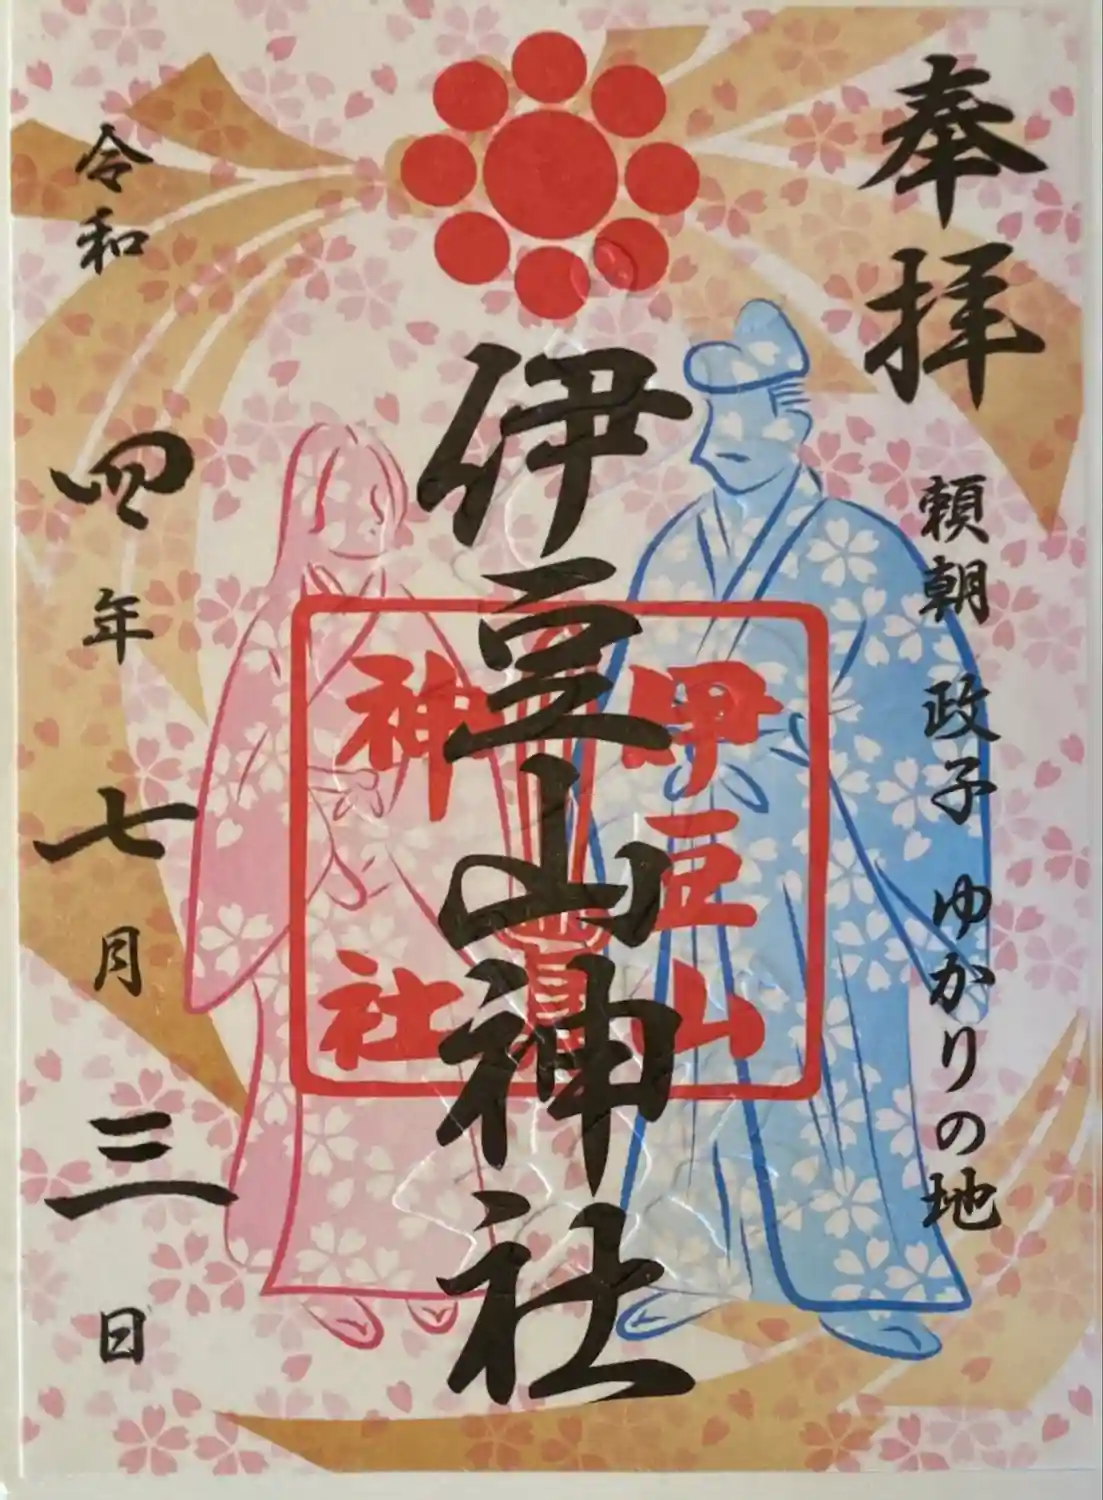 奉拝
頼朝 政子 ゆかりの地
伊豆山神社
伊豆山
神社
令和四年七月三日